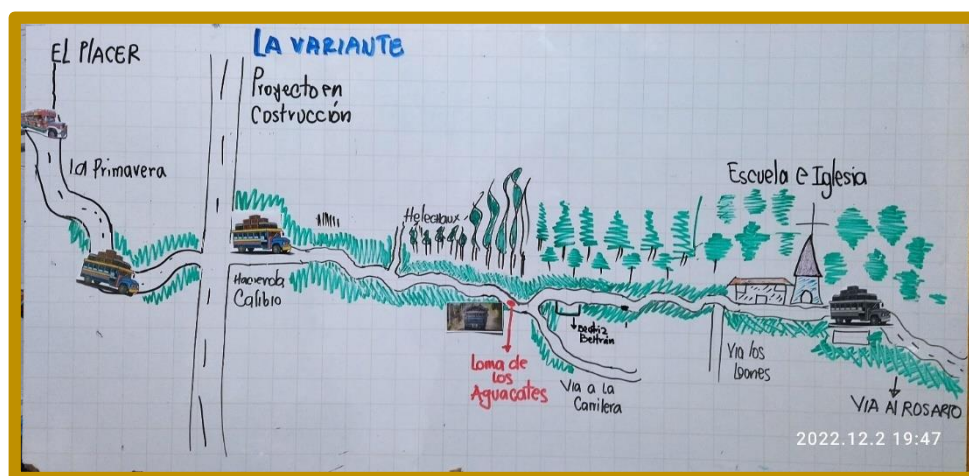 EL PlACER
LA VARIANTE
Proyecto en
Costrucción
la Primavera
Escuela e Iglesia
Hacienda
Calibío
Loma de
los
Aguacates
Beatriz
Beltrán
Via a la
Carrilera
Via los
Leones
VIA Al ROSARIO
2022.12.2 19:47